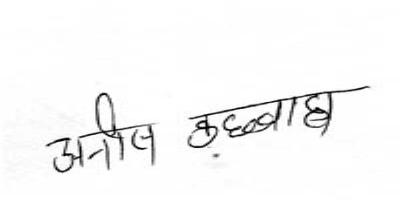 अनील कुछवाह